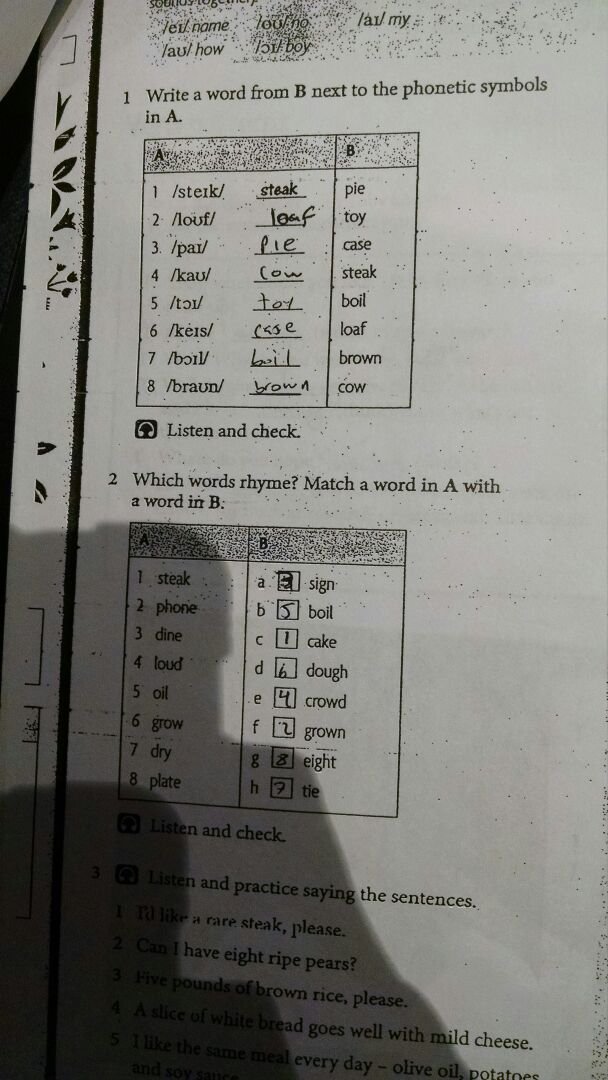 sounds together.
/eɪ/ name /oʊ/ no /aɪ/ my
/aʊ/ how /ɔɪ/ boy
1 Write a word from B next to the phonetic symbols
in A.
A B
1 /steɪk/ steak pie
2 /loʊf/ loaf toy
3 /paɪ/ pie case
4 /kaʊ/ cow steak
5 /tɔɪ/ toy boil
6 /keɪs/ case loaf
7 /bɔɪl/ boil brown
8 /braʊn/ brown cow
Listen and check.
2 Which words rhyme? Match a word in A with
a word in B.
A B
1 steak a 3 sign
2 phone b 5 boil
3 dine c 1 cake
4 loud d 6 dough
5 oil e 4 crowd
6 grow f 2 grown
7 dry g 8 eight
8 plate h 7 tie
Listen and check.
3 Listen and practice saying the sentences.
1 I'd like a rare steak, please.
2 Can I have eight ripe pears?
3 Five pounds of brown rice, please.
4 A slice of white bread goes well with mild cheese.
5 I like the same meal every day – olive oil, potatoes
and soy sauce